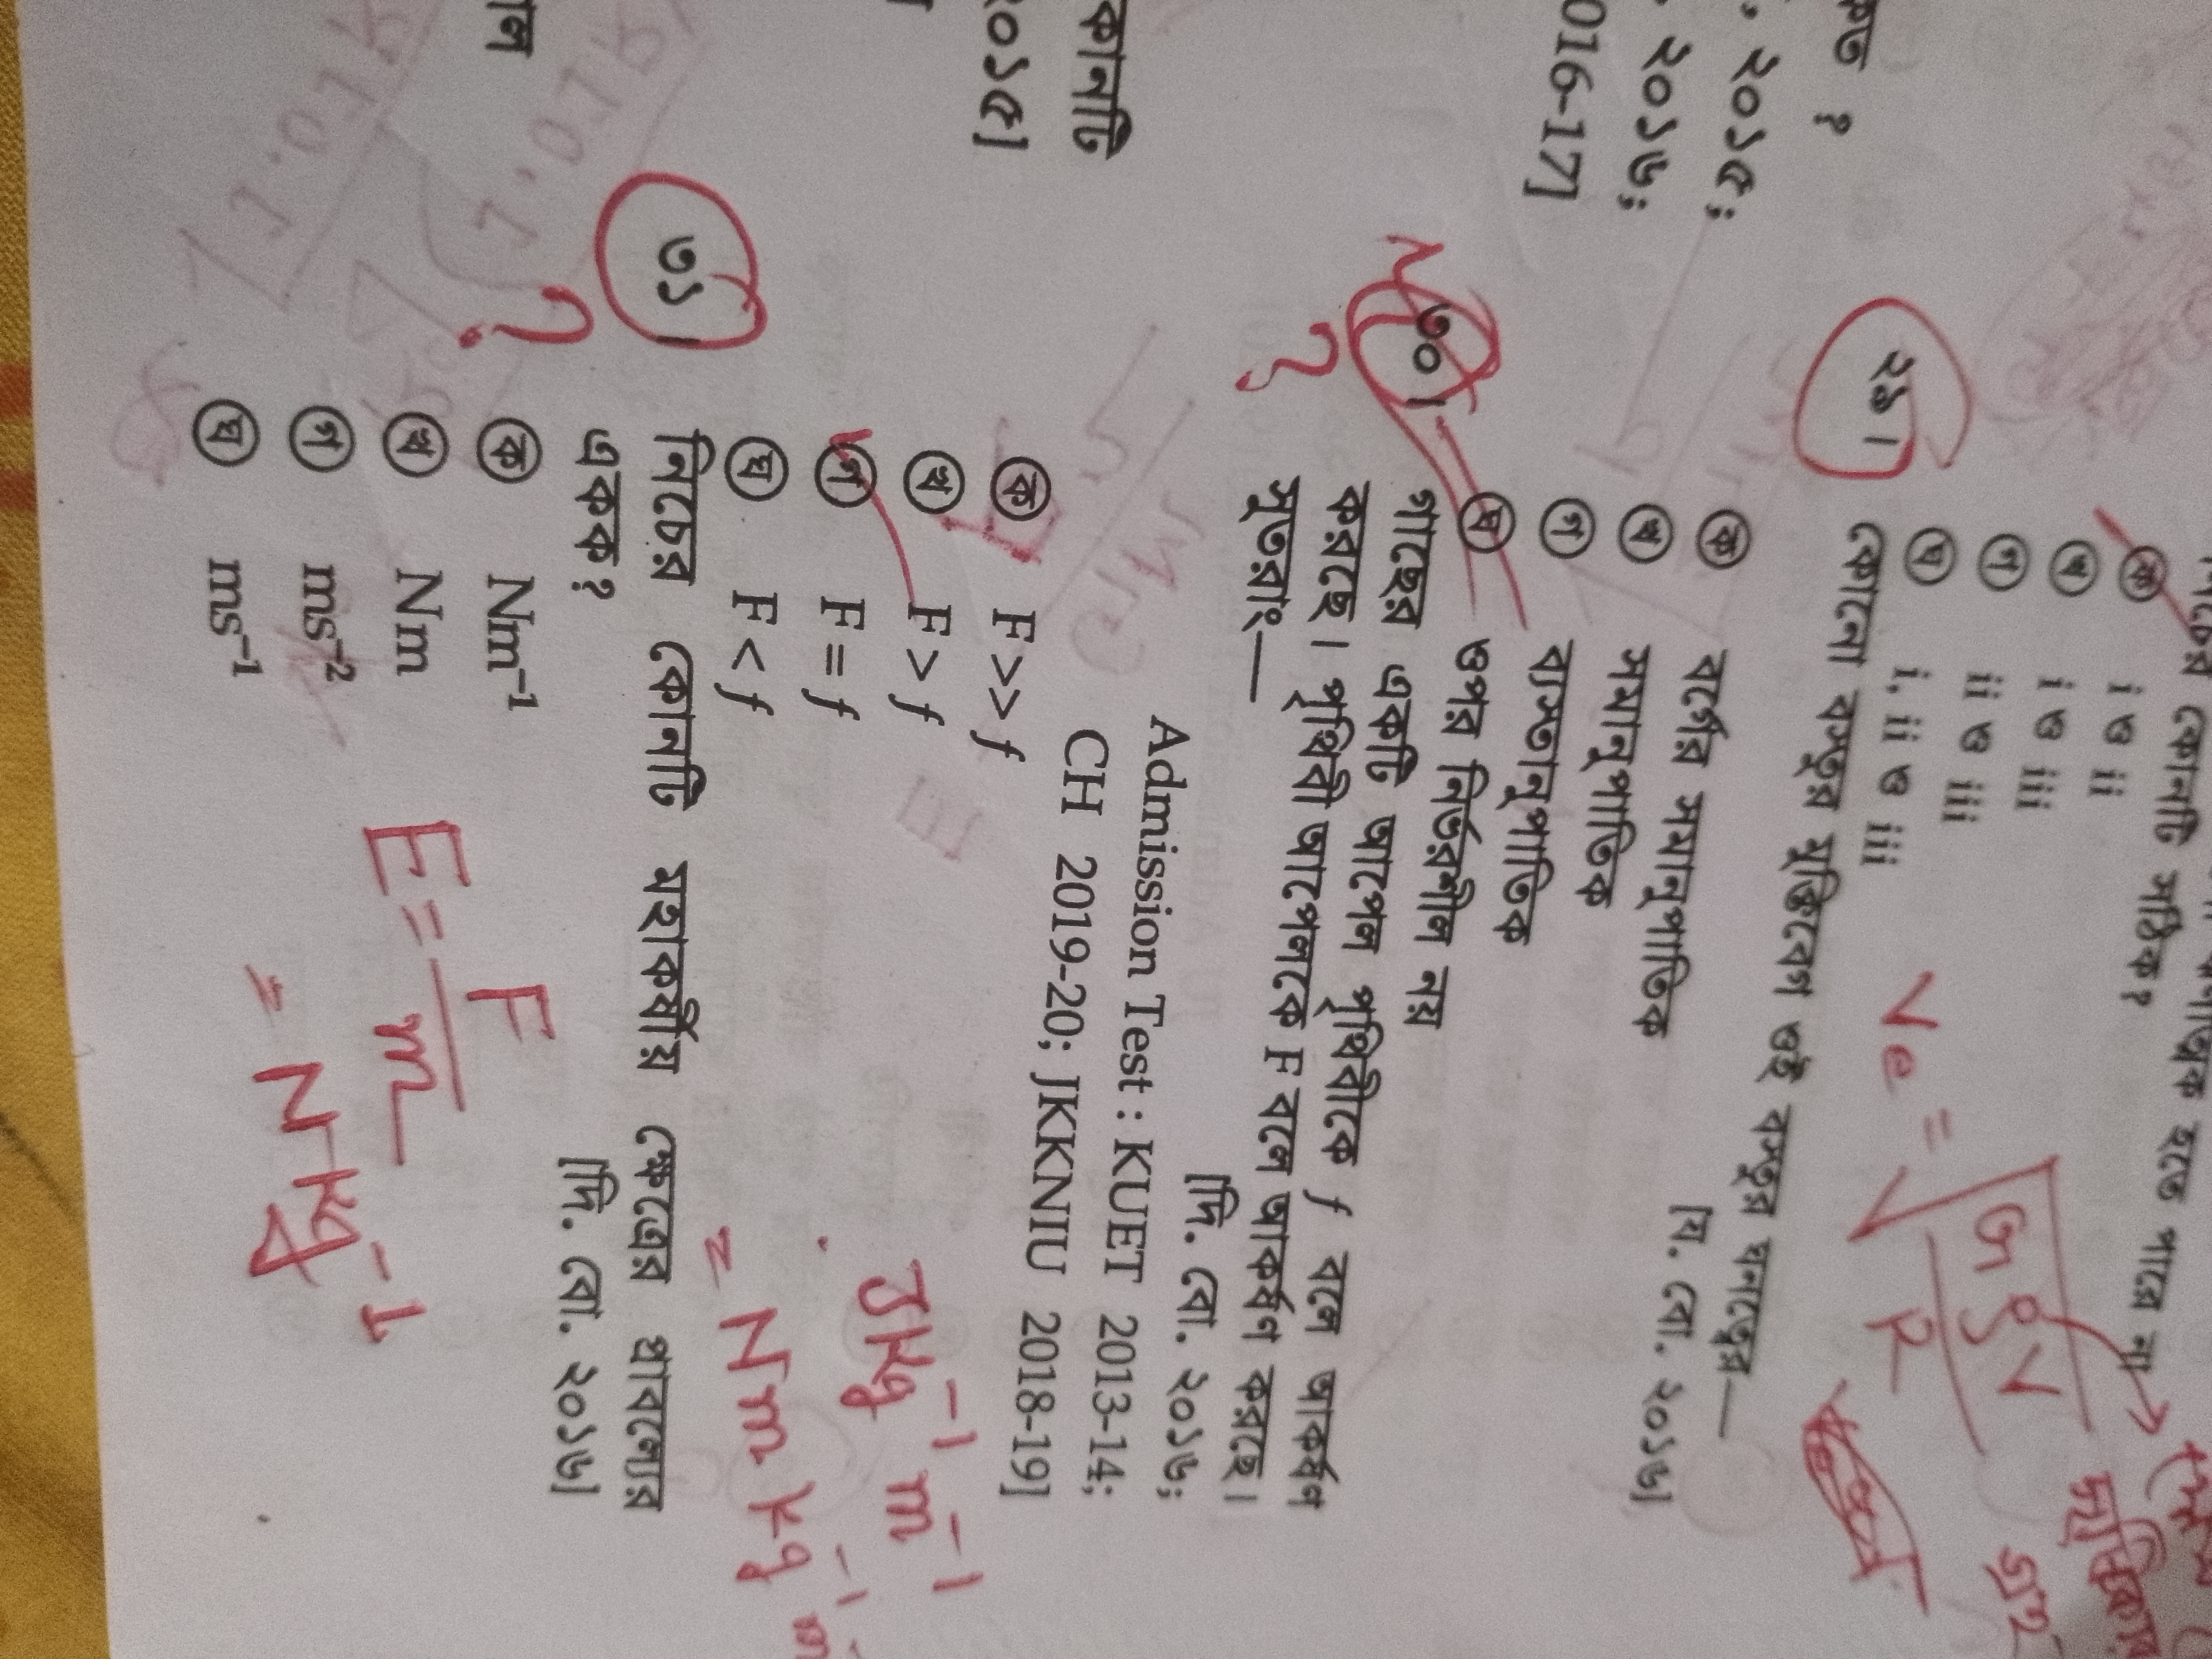 কত ?
. ২০১৫;
. ২০১৬;
016-17]
কোনটি
২০১৫]
কোনটি সঠিক?
ক i ও ii
খ i ও iii
গ ii ও iii
ঘ i, ii ও iii
২৯। কোনো বস্তুর মুক্তিবেগ ওই বস্তুর ঘনত্বের—
[য. বো. ২০১৬]
ক বর্গের সমানুপাতিক
খ সমানুপাতিক
গ ব্যস্তানুপাতিক
ঘ ওপর নির্ভরশীল নয়
৩০। গাছের একটি আপেল পৃথিবীকে f বলে আকর্ষণ
করছে। পৃথিবী আপেলকে F বলে আকর্ষণ করছে।
সুতরাং—
[দি. বো. ২০১৬;
Admission Test : KUET 2013-14;
CH 2019-20; JKKNIU 2018-19]
ক F >> f
খ F > f
গ F = f
ঘ F < f
JKg⁻¹ m⁻¹
= Nm Kg⁻¹ m⁻
৩১। নিচের কোনটি মহাকর্ষীয় ক্ষেত্রের প্রাবল্যের
একক?
[দি. বো. ২০১৬]
ক Nm⁻¹
খ Nm
গ ms⁻²
ঘ ms⁻¹
E = F/m
= N Kg⁻¹